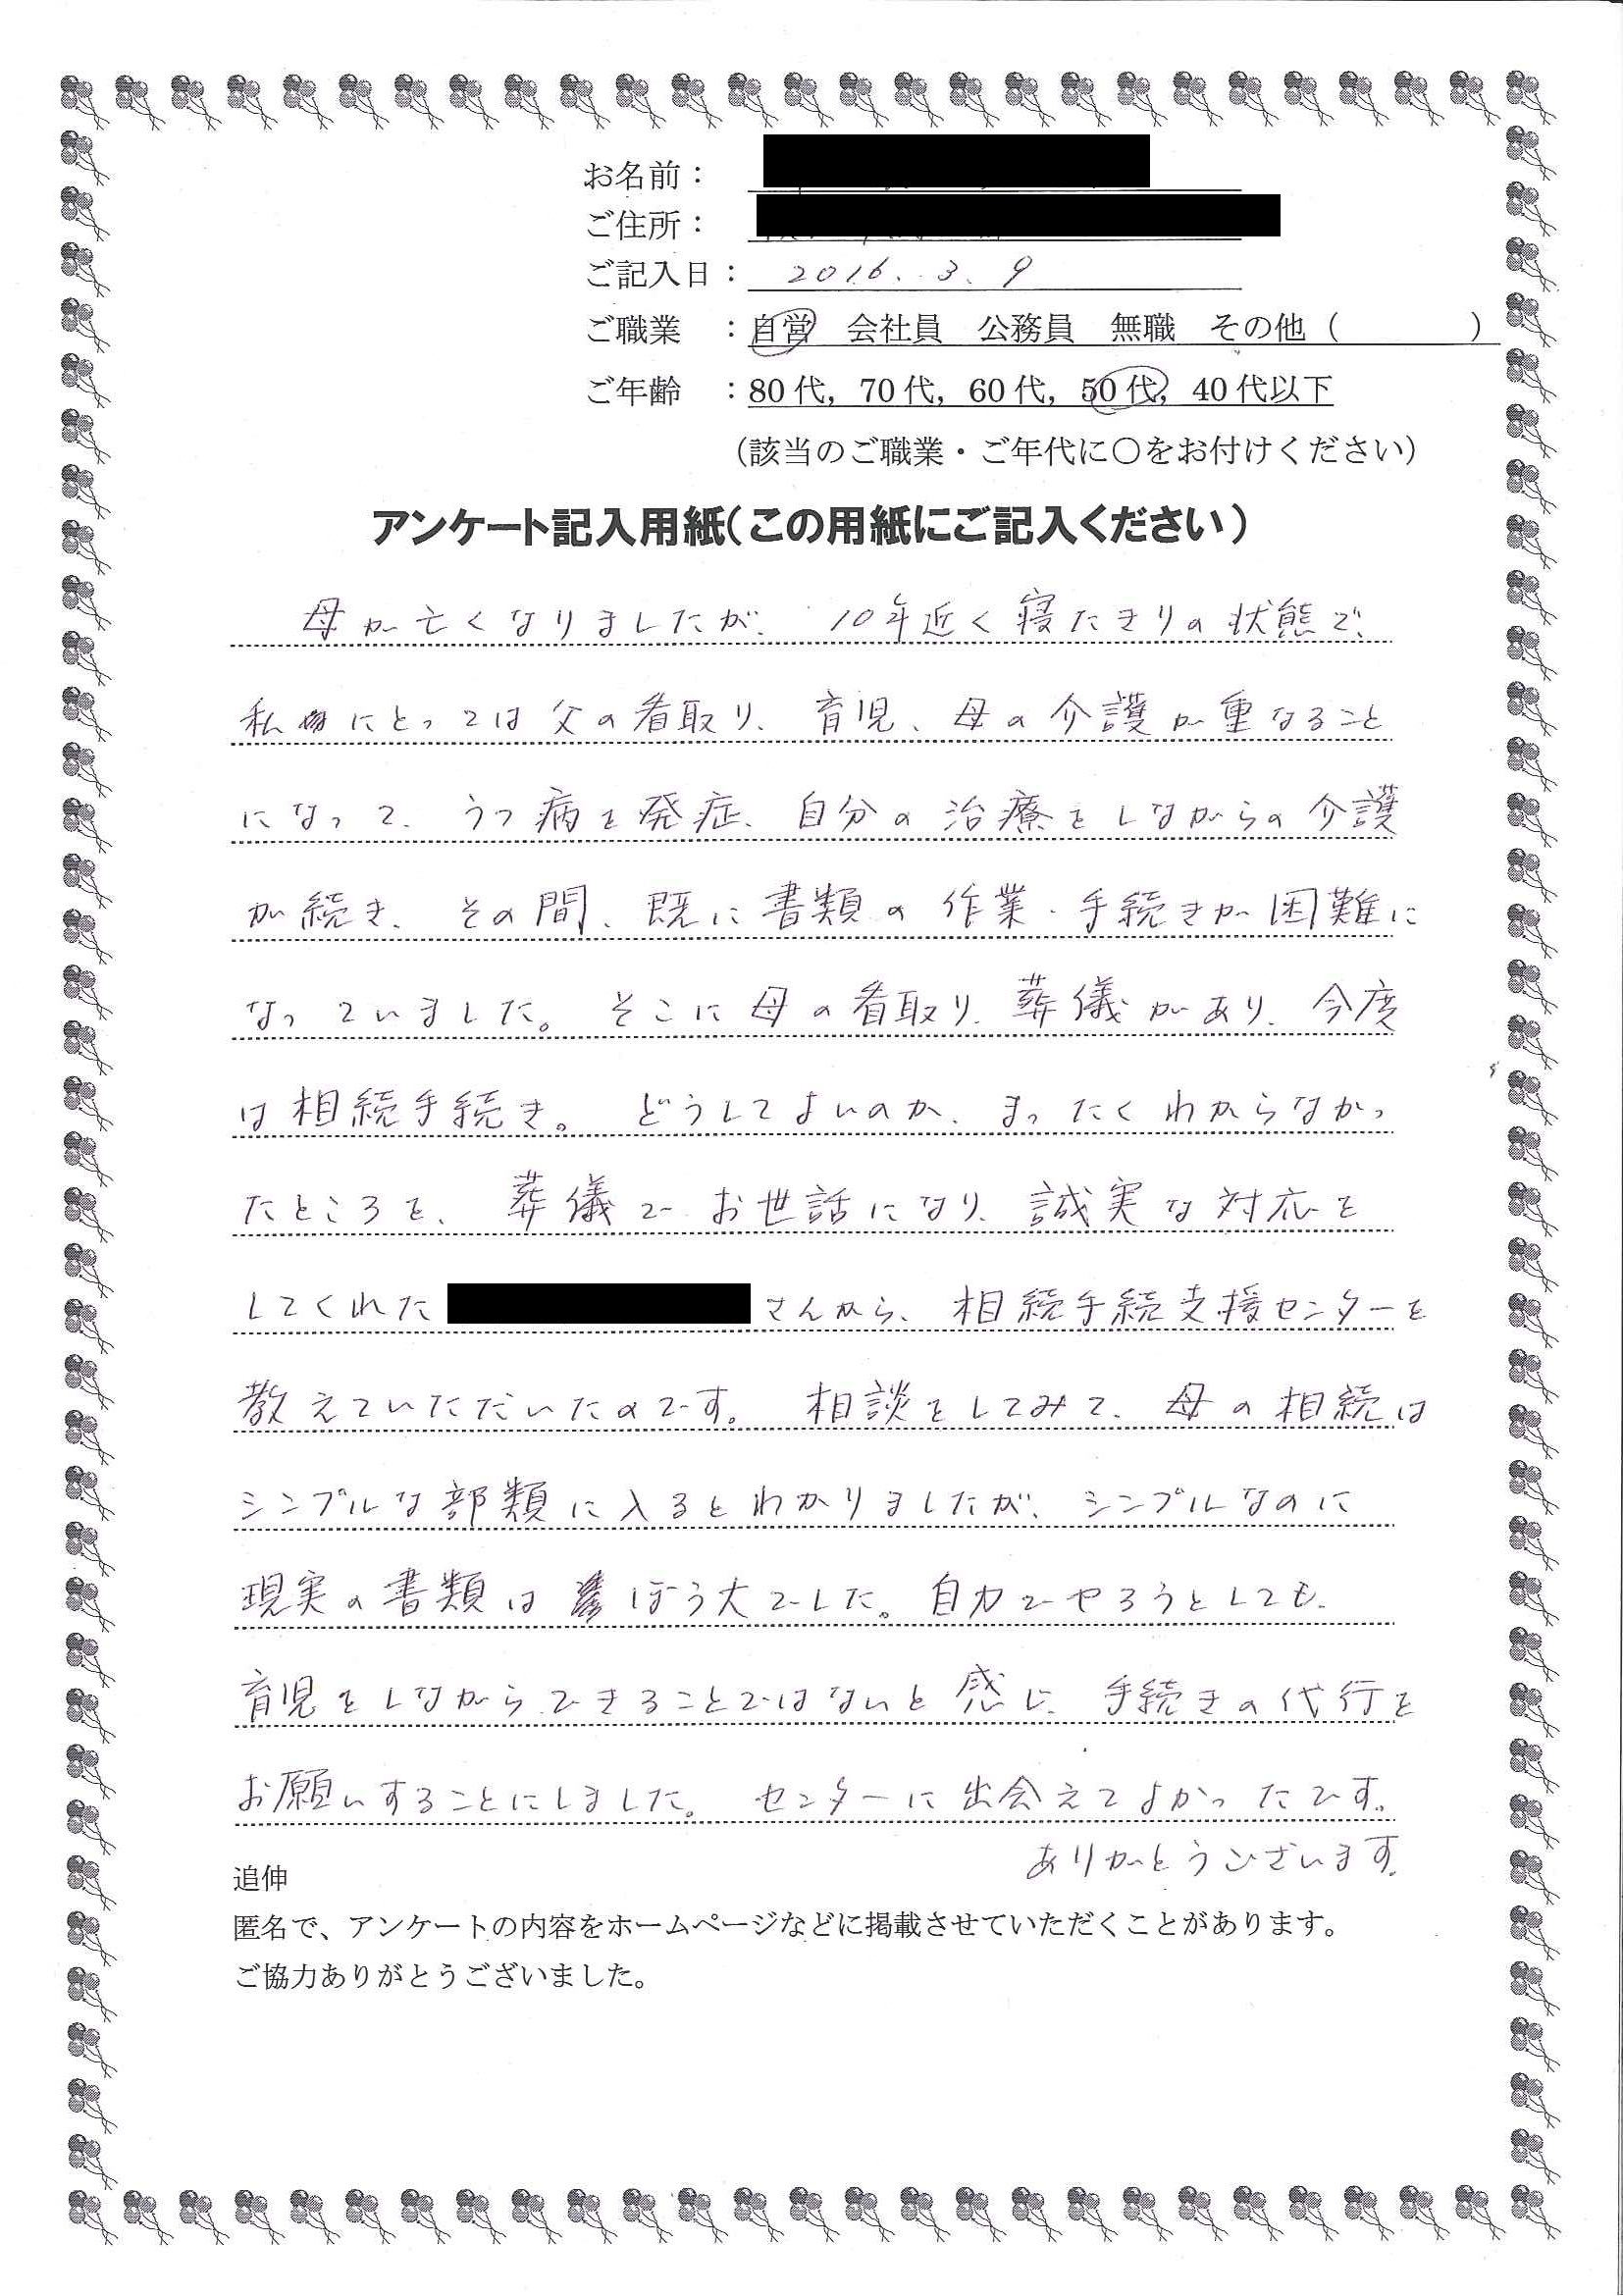 お名前：
ご住所：
ご記入日： 2016. 3. 9
ご職業 ：自営 会社員 公務員 無職 その他（ ）
ご年齢 ：80代，70代，60代，50代，40代以下
（該当のご職業・ご年代に○をお付けください）
アンケート記入用紙（この用紙にご記入ください）
母が亡くなりましたが、10年近く寝たきりの状態で、
私にとっては父の看取り、育児、母の介護が重なること
になって、うつ病を発症、自分の治療をしながらの介護
が続き、その間、既に書類の作業・手続きが困難に
なっていました。そこに母の看取り、葬儀があり、今度
は相続手続き。どうしてよいのか、まったくわからなかっ
たところを、葬儀でお世話になり、誠実な対応を
してくれた さんから、相続手続支援センターを
教えていただいたのです。相談をしてみて、母の相続は
シンプルな部類に入るとわかりましたが、シンプルなのに
現実の書類はぼう大でした。自力でやろうとしても、
育児をしながらできることではないと感じ、手続きの代行を
お願いすることにしました。センターに出会えてよかったです。
ありがとうございます。
追伸
匿名で、アンケートの内容をホームページなどに掲載させていただくことがあります。
ご協力ありがとうございました。